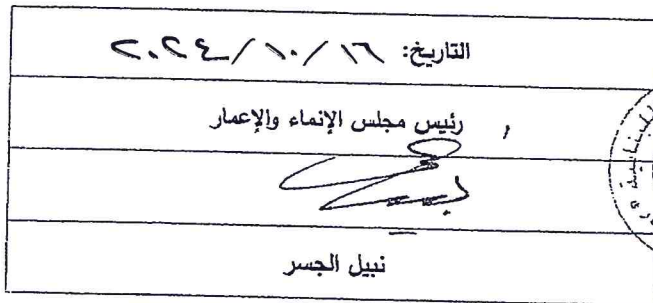 التاريخ: ١٦/١٠/٢٠٢٤
رئيس مجلس الإنماء والإعمار
نبيل الجسر